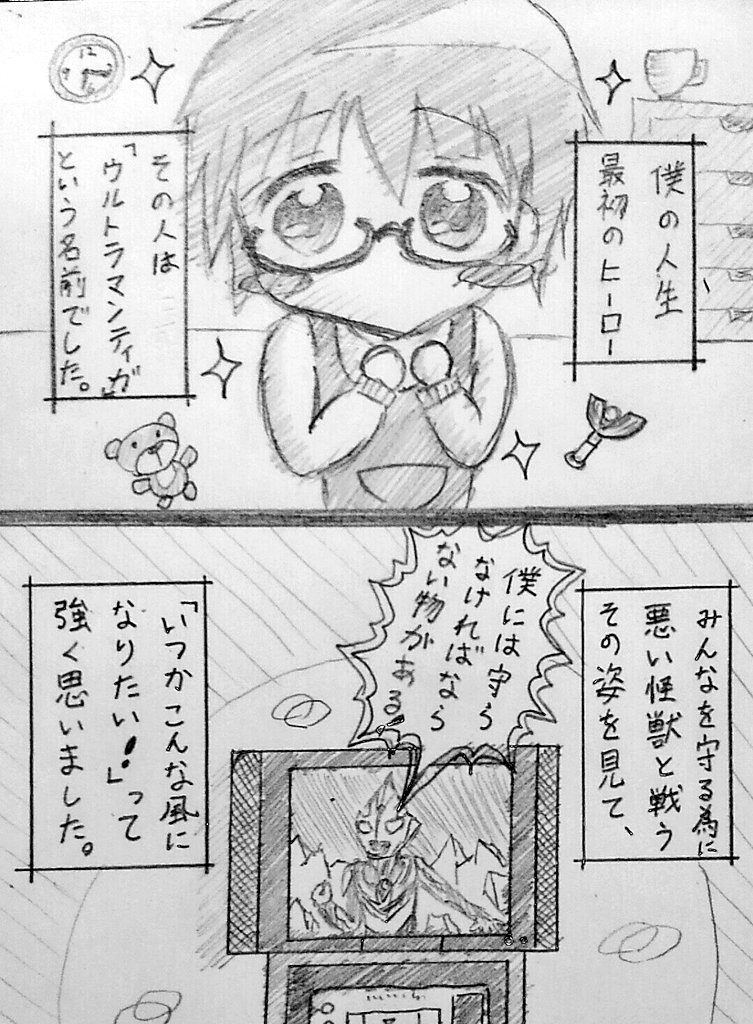 僕の人生
最初のヒーロー
その人は
「ウルトラマンティガ」
という名前でした。
みんなを守る為に
悪い怪獣と戦う
その姿を見て、
僕には守ら
なければなら
ない物がある
「いつかこんな風に
なりたい！」って
強く思いました。
12